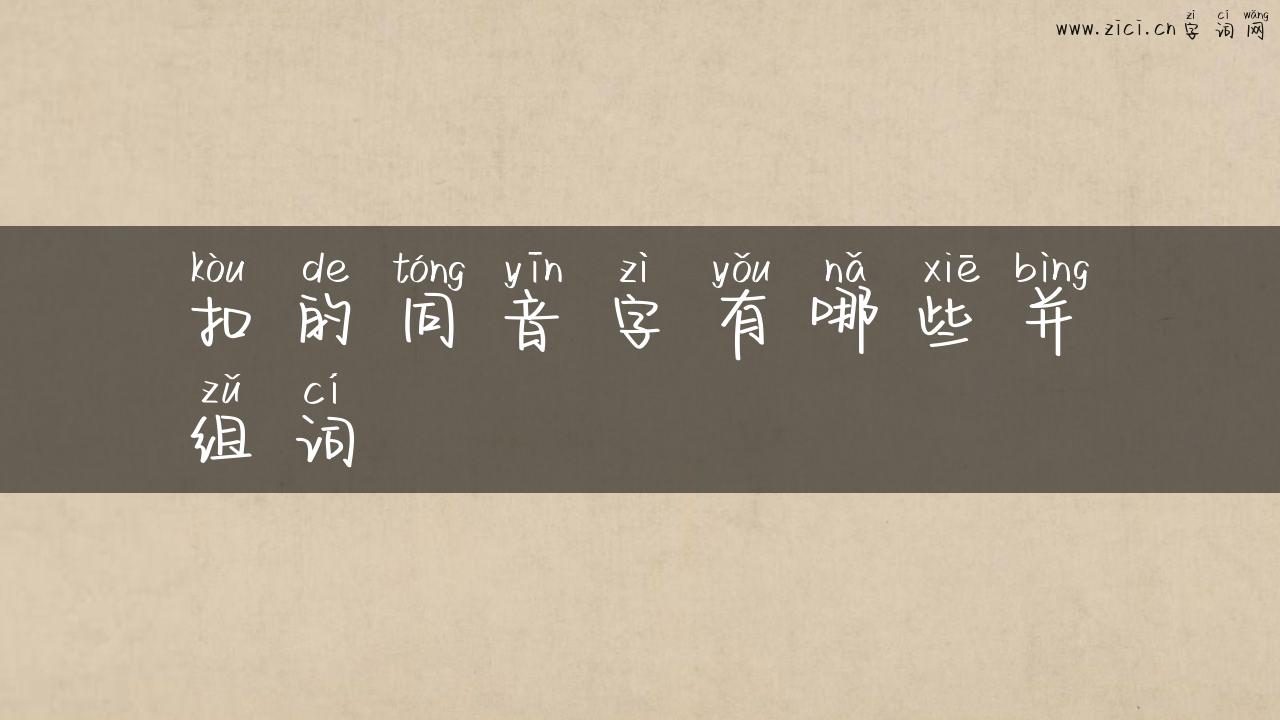 zì cí wǎng
www.zici.cn 字词网
kòu de tóng yīn zì yǒu nǎ xiē bìng
扣的同音字有哪些并
zǔ cí
组词